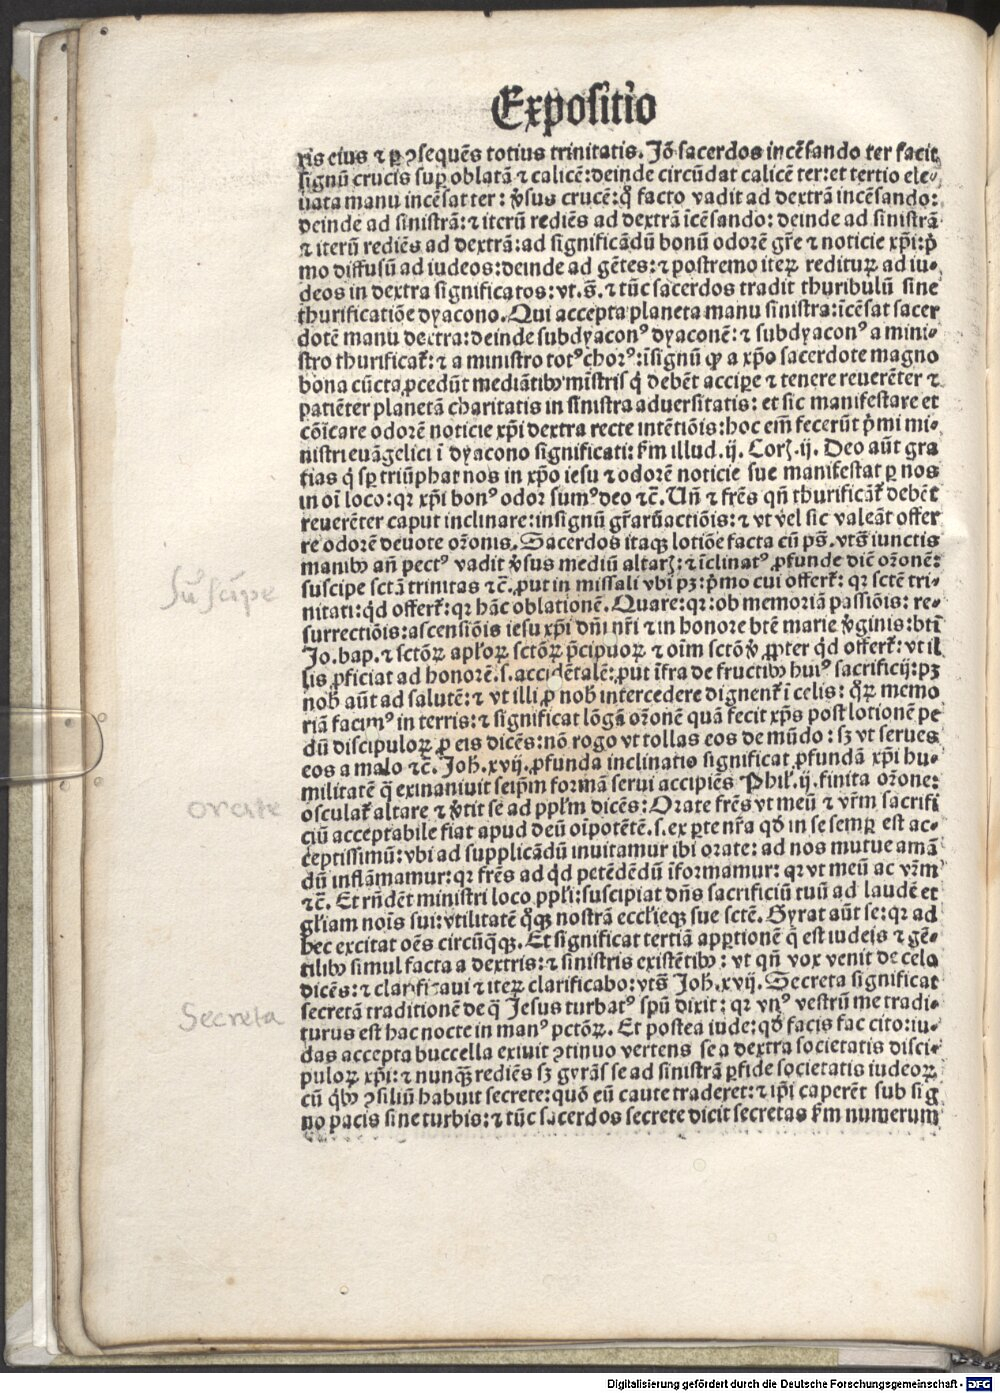 Expositio
ris eius ⁊ ꝑ ꝯsequēs totius trinitatis. Jō sacerdos incēsando ter facit
signū crucis suꝑ oblatā ⁊ calicē: deinde circūdat calicē ter: et tertio ele-
uata manu incēsat ter: v̾sus crucē: qͦ facto vadit ad dextrā incēsando:
deinde ad sinistrā: ⁊ iterū rediēs ad dextrā īcēsando: deinde ad sinistrā
⁊ iterū rediēs ad dextrā: ad significādū bonū odorē gr̄e ⁊ noticie xp̄i: p̄
mo diffusū ad iudeos: deinde ad gētes: ⁊ postremo iteꝝ redituꝝ ad iu-
deos in dextra significatos: vt.s̄. ⁊ tūc sacerdos tradit thuribulū sine
thurificatiōe dyacono. Qui accepta planeta manu sinistra: īcēsat sacer
dotē manu dextra: deinde subdyaconꝰ dyaconē: ⁊ subdyaconꝰ a mini-
stro thurificat̄: ⁊ a ministro totꝰ chorꝰ: īsignū ꝙ a xp̄o sacerdote magno
bona cūcta ꝓcedūt mediātibꝰ mīstris q̄ debēt acciꝑe ⁊ tenere reuerēter ⁊
patiēter planetā charitatis in sinistra aduersitatis: et sic manifestare et
cōīcare odorē noticie xp̄i dextra recte intētiōis: hoc eīn fecerūt p̄mi mi-
nistri euāgelici ī dyacono significati: ẜm illud.ij. Corꝝ.ij. Deo aūt gra
tias q̄ sꝑ triūphat nos in xp̄o iesu ⁊ odorē noticie sue manifestat ꝑ nos
in oī loco: qꝛ xp̄i bonꝰ odor sumꝰ deo ⁊c̄. Un̄ ⁊ fr̄es qn̄ thurificāt̄ debēt
reuerēter caput inclinare: insignū gr̄aꝝ actiōis: ⁊ vt vel sic valeāt offer
re odorē deuote or̄onis. Sacerdos itaqꝫ lotiōe facta cū ps̄. vts̄ iunctis
manibꝰ an̄ pectꝰ vadit v̾sus mediū altarꝭ: ⁊ īclinatꝰ ꝓfunde dic̄ or̄onē:
suscipe sctā trinitas ⁊c̄. put in missali vbi pꝫ: p̄mo cui offert̄: qꝛ sctē tri-
nitati: qͥd offert̄: qꝛ hāc oblationē. Quare: qꝛ: ob memoriā passiōis: re-
surrectiōis: ascensiōis iesu xp̄i dn̄i nr̄i ⁊ in honore btē marie v̾ginis: btī
Jo. bap. ⁊ sctōꝝ apl̄oꝝ sctōꝝ p̄cipuoꝝ ⁊ oīm sctōꝝ, ꝓpter qͥd offert̄: vt il
lis ꝓficiat ad honorē.s. accidētalē: ꝓut īfra de fructibꝰ huiꝰ sacrificij: pꝫ
nob̄ aūt ad salutē: ⁊ vt illi ꝓ nob̄ intercedere dignent̄ ī celis: qͦꝝ memo
riā facimꝰ in terris: ⁊ significat lōgā or̄onē quā fecit xp̄s post lotionē pe
dū discipuloꝝ ꝓ eis dicēs: nō rogo vt tollas eos de mūdo: sꝫ vt serues
eos a malo ⁊c̄. Joh̄.xvij. ꝓfunda inclinatio significat ꝓfundā xp̄i hu-
militatē q̄ exinaniuit seip̄m formā serui accipiēs Phil̄.ij. finita or̄one:
osculat̄ altare ⁊ v̾tit se ad ppl̄m dicēs: Orate fr̄es vt meū ⁊ vr̄m sacrifi
ciū acceptabile fiat apud deū oīpotētē.s. ex ꝑte nr̄a qd̄ in se semꝑ est ac-
ceptissimū: vbi ad supplicādū inuitamur ibi orate: ad nos mutue amā
dū inflāmamur: qꝛ fr̄es ad qͥd petēdēdū īformamur: qꝛ vt meū ac vr̄m
⁊c̄. Et rn̄dēt ministri loco ppl̄i: suscipiat dn̄s sacrificiū tuū ad laudē et
gl̄iam nois̄ sui: vtilitatē qͦqꝫ nostrā eccl̄ieqꝫ sue sctē. Gyrat aūt se: qꝛ ad
hec excitat oēs circūqͣqꝫ. Et significat tertiā apꝑtionē q̄ est iudeis ⁊ gē-
tilibꝰ simul facta a dextris: ⁊ sinistris existētibꝰ: vt qn̄ vox venit de celo
dicēs: ⁊ clarificaui ⁊ iteꝝ clarificabo: vts̄ Joh̄.xvij. Secreta significat
secretā traditionē de q̄ Jesus turbatꝰ spū dixit: qꝛ vnꝰ vestrū me tradi-
turus est hac nocte in manꝰ pctōꝝ. Et postea iude: qd̄ facis fac cito: iu-
das accepta buccella exiuit ꝯtinuo vertens se a dextra societatis disci-
puloꝝ xp̄i: ⁊ nunqꝫ rediēs sꝫ gyrās se ad sinistrā ꝑfide societatis iudeoꝝ
cū qͥbꝰ ꝯsiliū habuit secrete: quō eū caute traderet: ⁊ ip̄i caperēt sub sig
no pacis sine turbis: ⁊ tūc sacerdos secrete dicit secretas ẜm numerum
Suscipe
orate
Secreta
Digitalisierung gefördert durch die Deutsche Forschungsgemeinschaft - DFG